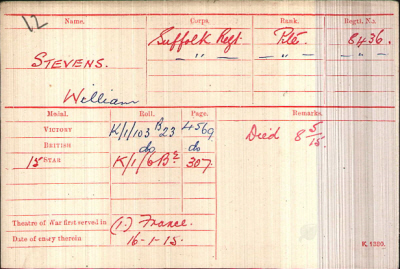 12
Name. Corps. Rank. Regtl. No.
STEVENS. Suffolk Regt Pte. 8436.
— " — " — — " — — " —
William
Medal. Roll. Page. Remarks.
VICTORY K/1/103 B23 4569 Died 8/5/15.
BRITISH do do
15 STAR K/1/6 B2 307.
Theatre of War first served in (1) France.
Date of entry therein 16-1-15.
K. 1380.